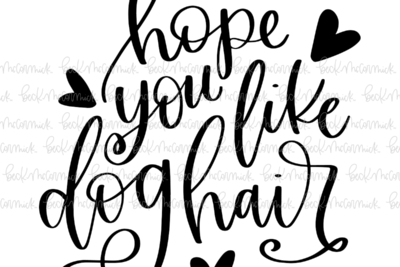 hope
you like
dog hair